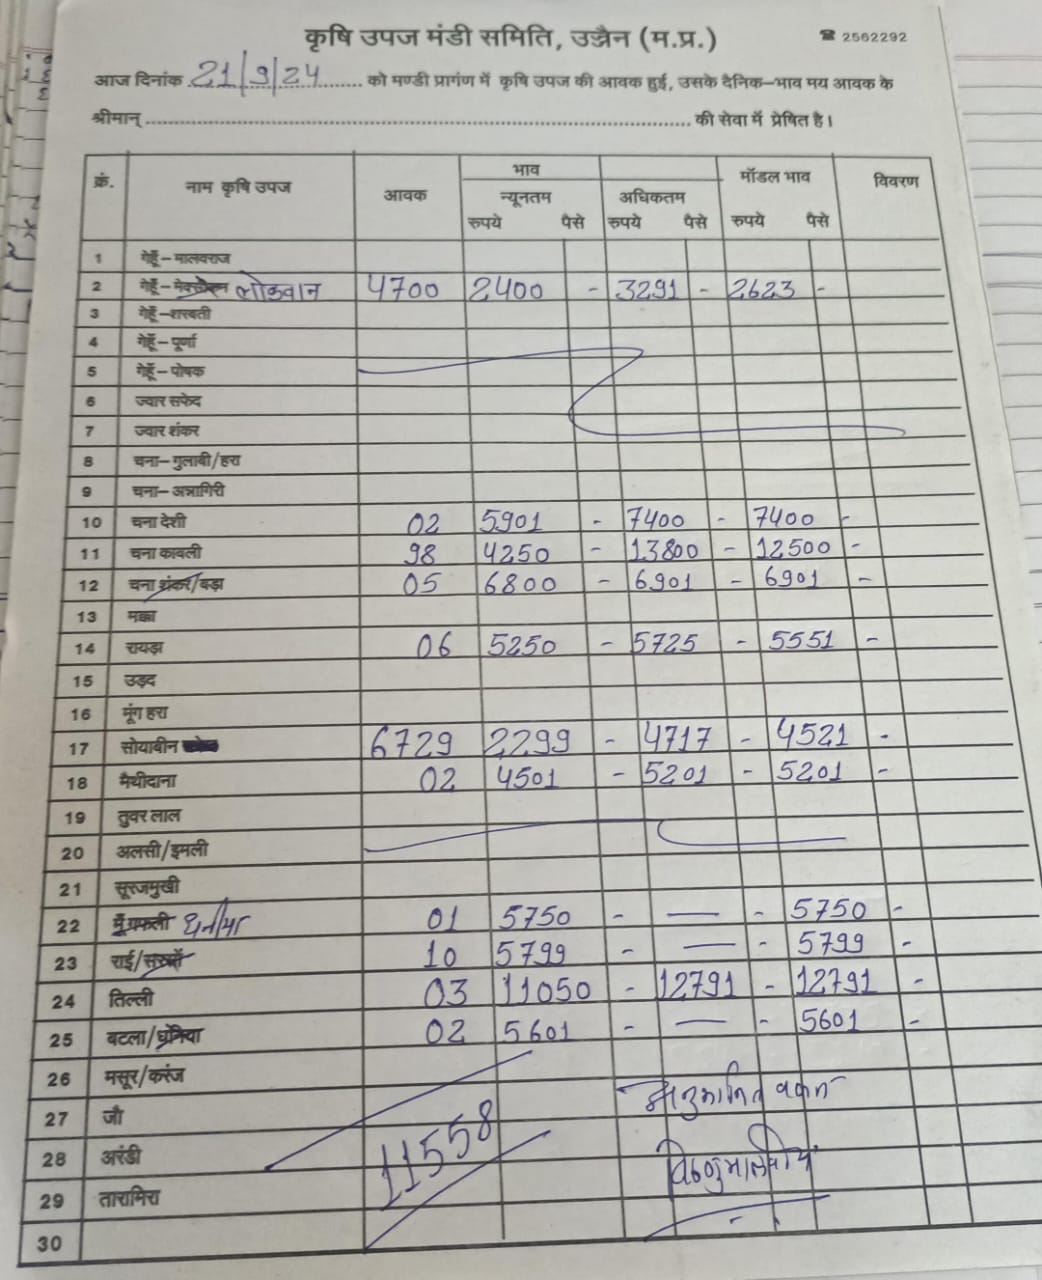 कृषि उपज मंडी समिति, उज्जैन (म.प्र.) ☎ 2562292
आज दिनांक 21/9/24 को मण्डी प्रागंण में कृषि उपज की आवक हुई, उसके दैनिक-भाव मय आवक के
श्रीमान् की सेवा में प्रेषित है।
क्रं. नाम कृषि उपज आवक भाव मॉडल भाव विवरण
न्यूनतम अधिकतम
रुपये पैसे रुपये पैसे रुपये पैसे
1 गेहूँ-मालवराज
2 गेहूँ- लोकवान 4700 2400 - 3291 - 2623 -
3 गेहूँ-शरबती
4 गेहूँ-पूर्णा
5 गेहूँ-पोषक
6 ज्वार सफेद
7 ज्वार शंकर
8 चना-गुलाबी/हरा
9 चना-अन्नागिरी
10 चना देशी 02 5901 - 7400 - 7400 -
11 चना काबली 98 4250 - 13800 - 12500 -
12 चना शंकर/बड़ा 05 6800 - 6901 - 6901 -
13 मक्का
14 रायड़ा 06 5250 - 5725 - 5551 -
15 उड़द
16 मूंग हरा
17 सोयाबीन 6729 2299 - 4717 - 4521 -
18 मैथीदाना 02 4501 - 5201 - 5201 -
19 तुवर लाल
20 अलसी/इमली
21 सूरजमुखी
22 मूँगफली 01 5750 - — - 5750 -
23 राई/सरसों 10 5799 - — - 5799 -
24 तिल्ली 03 11050 - 12791 - 12791 -
25 बटला/धनिया 02 5601 - — - 5601 -
26 मसूर/करंज
27 जौ
28 अरंडी
29 तारामिरा
30
11558